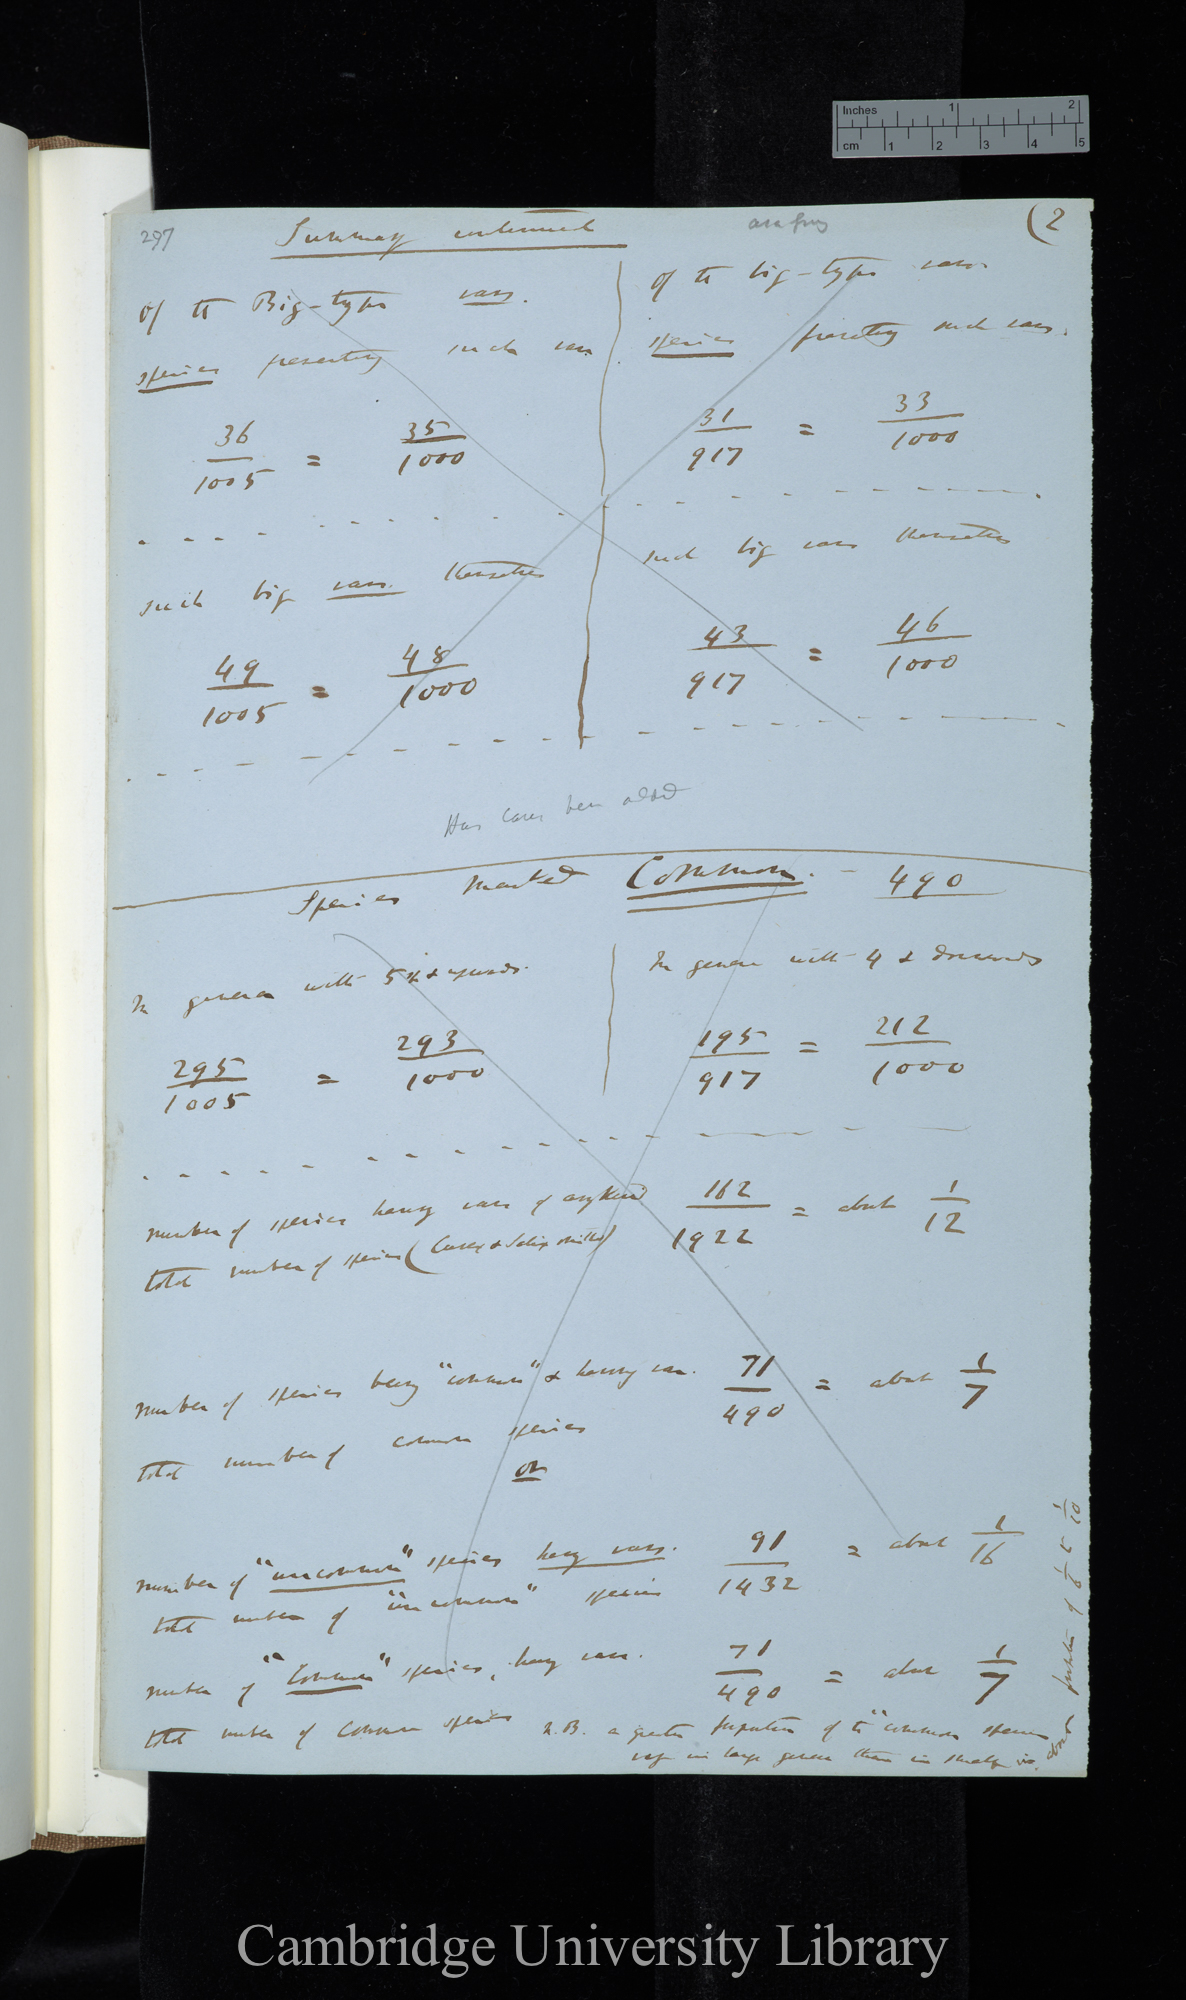 Inches 1 2
cm 1 2 3 4 5
297
Summary continued
(2
Of the Big-type vars.
species presenting such vars.
36/1005 = 35/1000
Of the big-type vars.
species presenting such vars.
31/917 = 33/1000
such big vars. themselves
49/1005 = 48/1000
such big vars themselves
43/917 = 46/1000
Has Carex been added
Species marked Common. - 490
In genera with 5 & upwards.
295/1005 = 293/1000
In genera with 4 & downwards
195/917 = 212/1000
number of species having vars of any kind 162/1922 = about 1/12
total number of species (Carex & Salix omitted)
Number of species being "common" & having var. 71/490 = about 1/7
total number of common species
or
number of "uncommon" species having vars. 91/1432 = about 1/16
total number of "uncommon" species
number of "Common" species, having vars. 71/490 = about 1/7
total number of Common species
N.B. a greater proportion of the "common species
vary in large genera than in small, viz.
about proportion of 1/8 to 1/10
Cambridge University Library